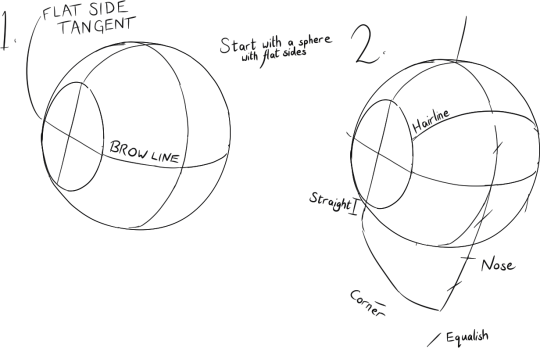 1.
FLAT SIDE
TANGENT
BROW LINE
Start with a sphere
with flat sides
2.
Hairline
Straight
Nose
Corner
Equalish